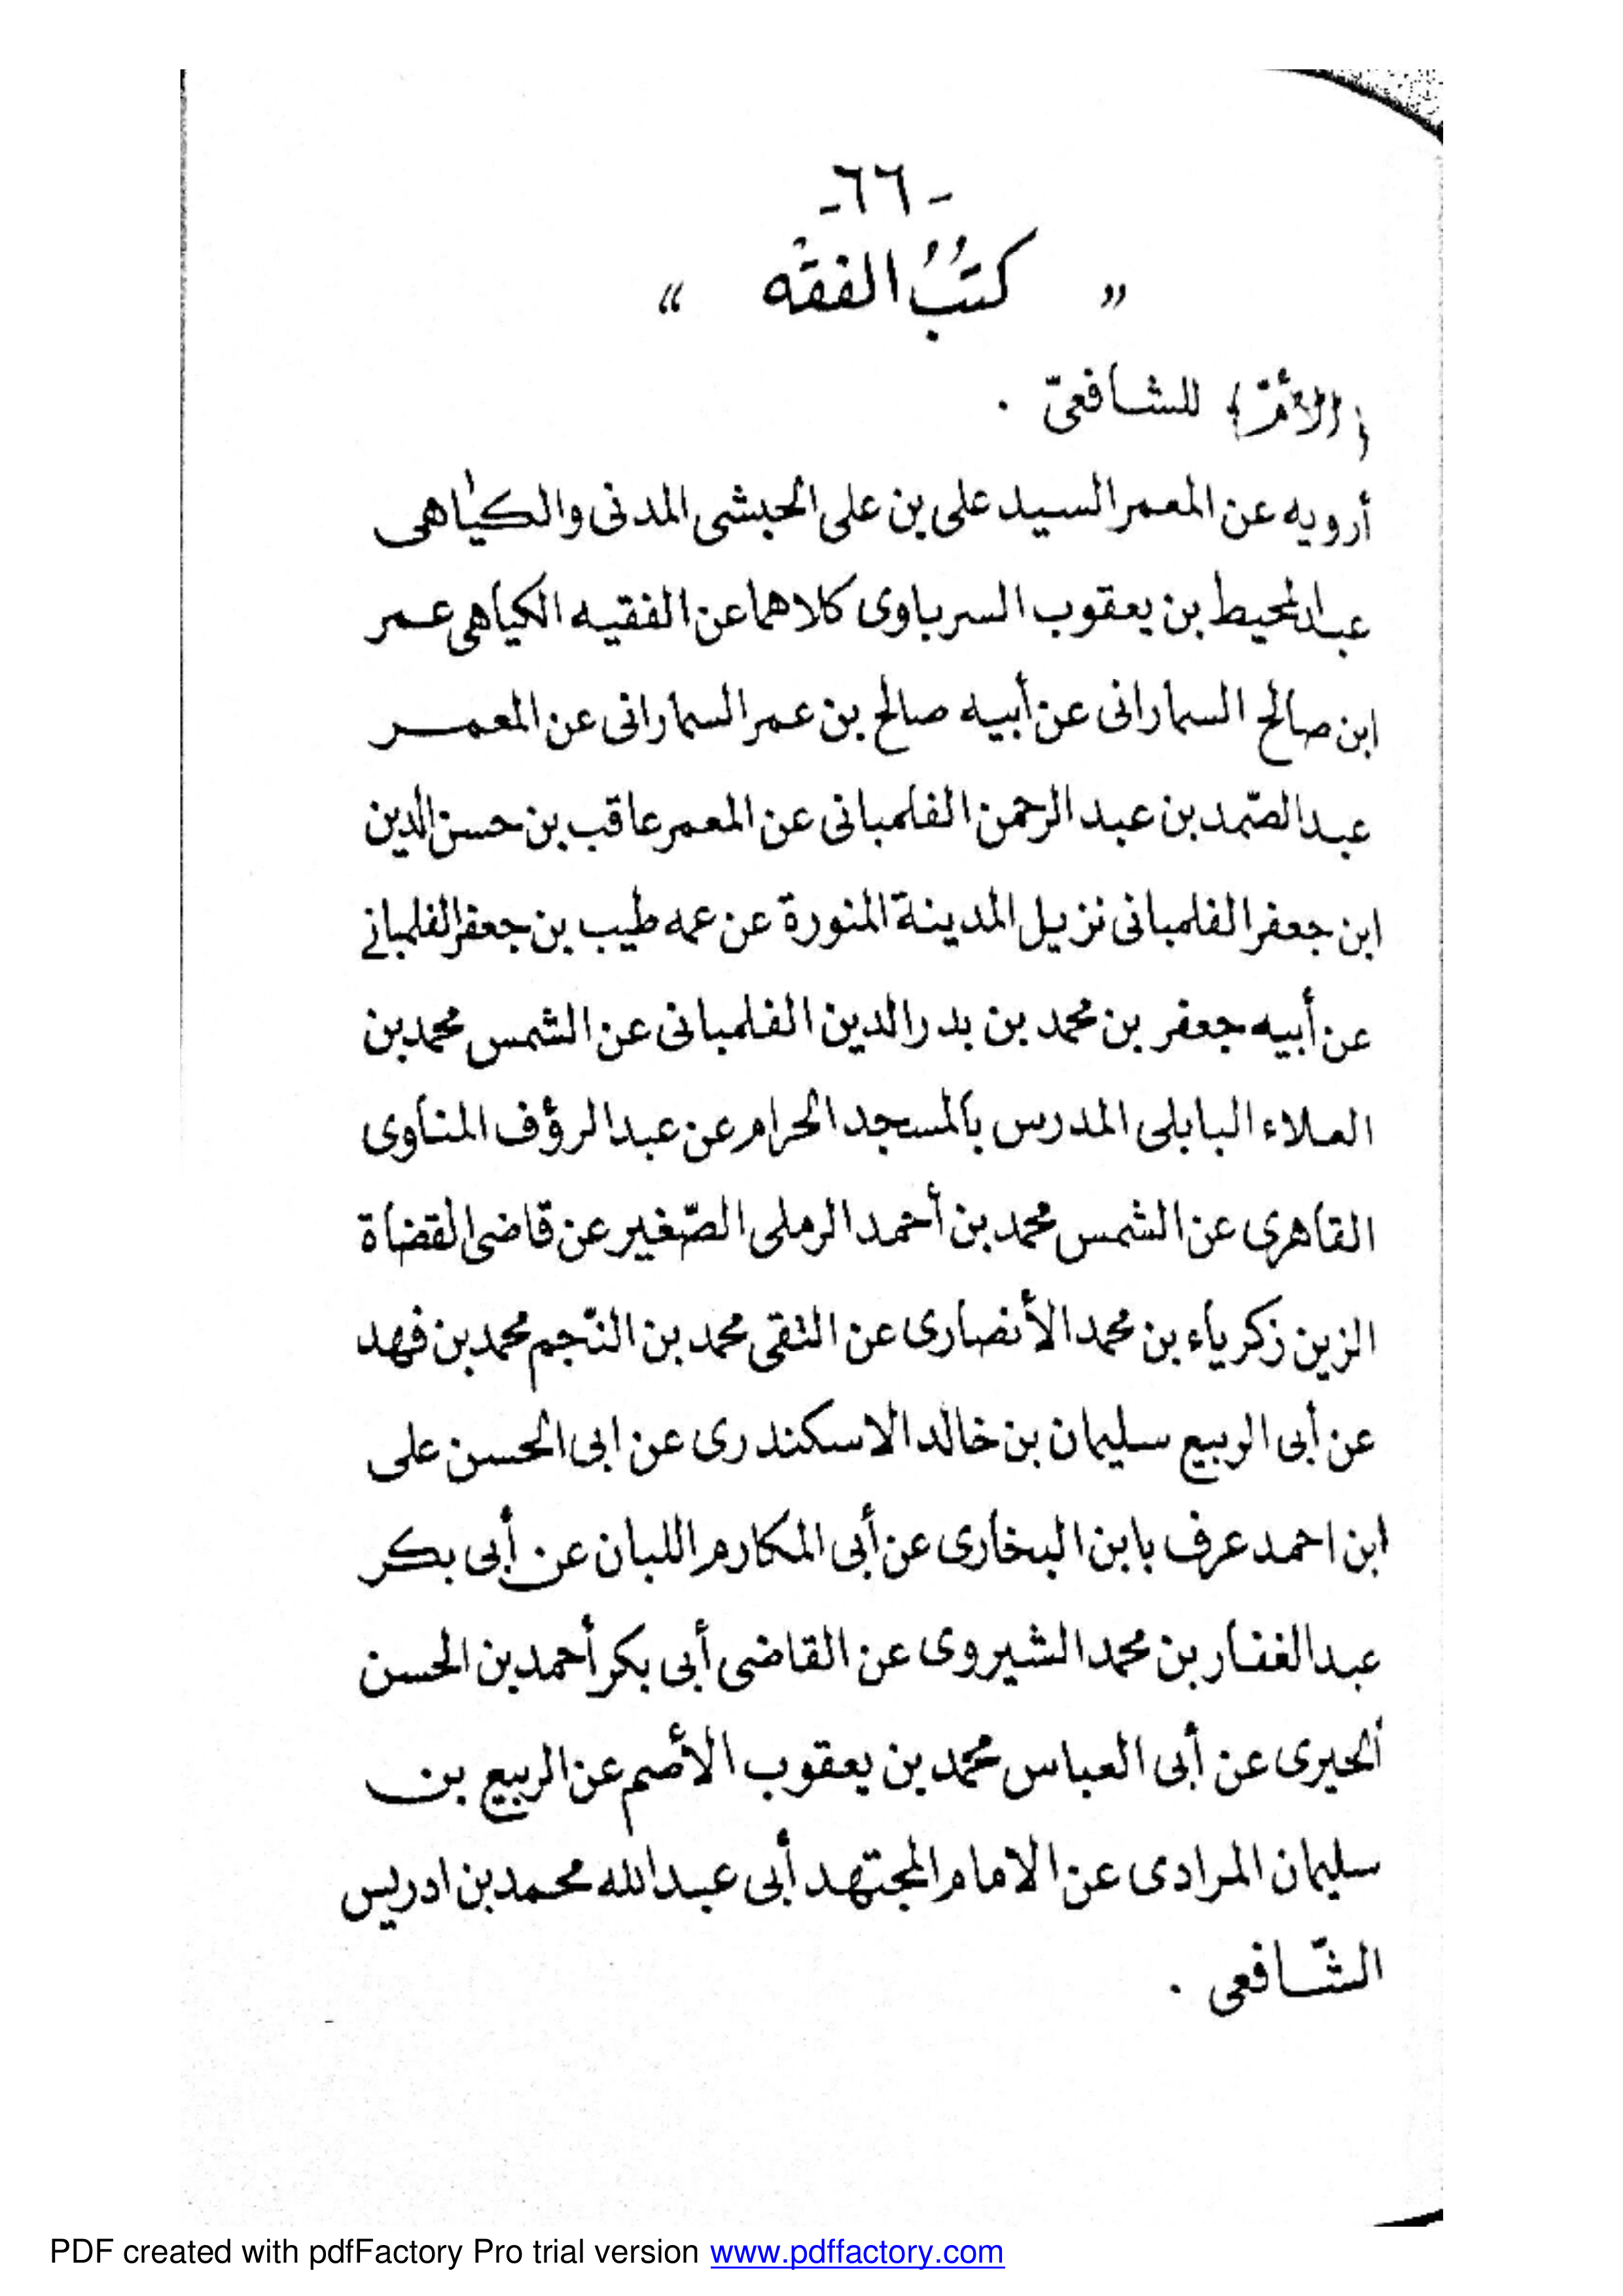 -٦٦-
" كتُبُ الفقْه "
{الأمّ} للشافعىّ .
أرويه عن المعمر السيد على بن على الحبشى المدنى والكياهى
عبد المحيط بن يعقوب السرباوى كلاهما عن الفقيه الكياهى عمر
ابن صالح السمارانى عن أبيه صالح بن عمر السمارانى عن المعمر
عبد الصّمد بن عبد الرحمن الفلمبانى عن المعمر عاقب بن حسن الدين
ابن جعفر الفلمبانى نزيل المدينة المنورة عن عمه طيب بن جعفر الفلمبانى
عن أبيه جعفر بن محمد بن بدر الدين الفلمبانى عن الشمس محمد بن
العلاء البابلى المدرس بالمسجد الحرام عن عبد الرؤف المناوى
القاهرى عن الشمس محمد بن أحمد الرملى الصّغير عن قاضى القضاة
الزين زكرياء بن محمد الأنصارى عن التقى محمد بن النّجم محمد بن فهد
عن أبى الربيع سليمان بن خالد الاسكندرى عن ابى الحسن على
ابن احمد عرف بابن البخارى عن أبى المكارم اللبان عن أبى بكر
عبد الغفار بن محمد الشيروى عن القاضى أبى بكر أحمد بن الحسن
الحيرى عن أبى العباس محمد بن يعقوب الأصم عن الربيع بن
سليمان المرادى عن الامام المجتهد أبى عبد الله محمد بن ادريس
الشّافعى .
PDF created with pdfFactory Pro trial version www.pdffactory.com